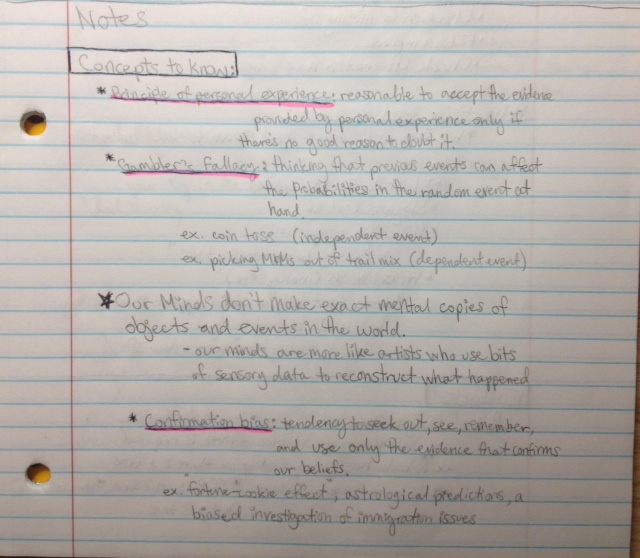 Notes
Concepts to know:
* Principle of personal experience: reasonable to accept the evidence
provided by personal experience only if
there's no good reason to doubt it.
* Gambler's Fallacy: thinking that previous events can affect
the probabilities in the random event at
hand.
ex. coin toss (independent event)
ex. picking M&Ms out of trail mix (dependent event)
* Our Minds don't make exact mental copies of
objects and events in the world.
- our minds are more like artists who use bits
of sensory data to reconstruct what happened
* Confirmation bias: tendency to seek out, see, remember,
and use only the evidence that confirms
our beliefs.
ex. "fortune-cookie effect", astrological predictions, a
biased investigation of immigration issues